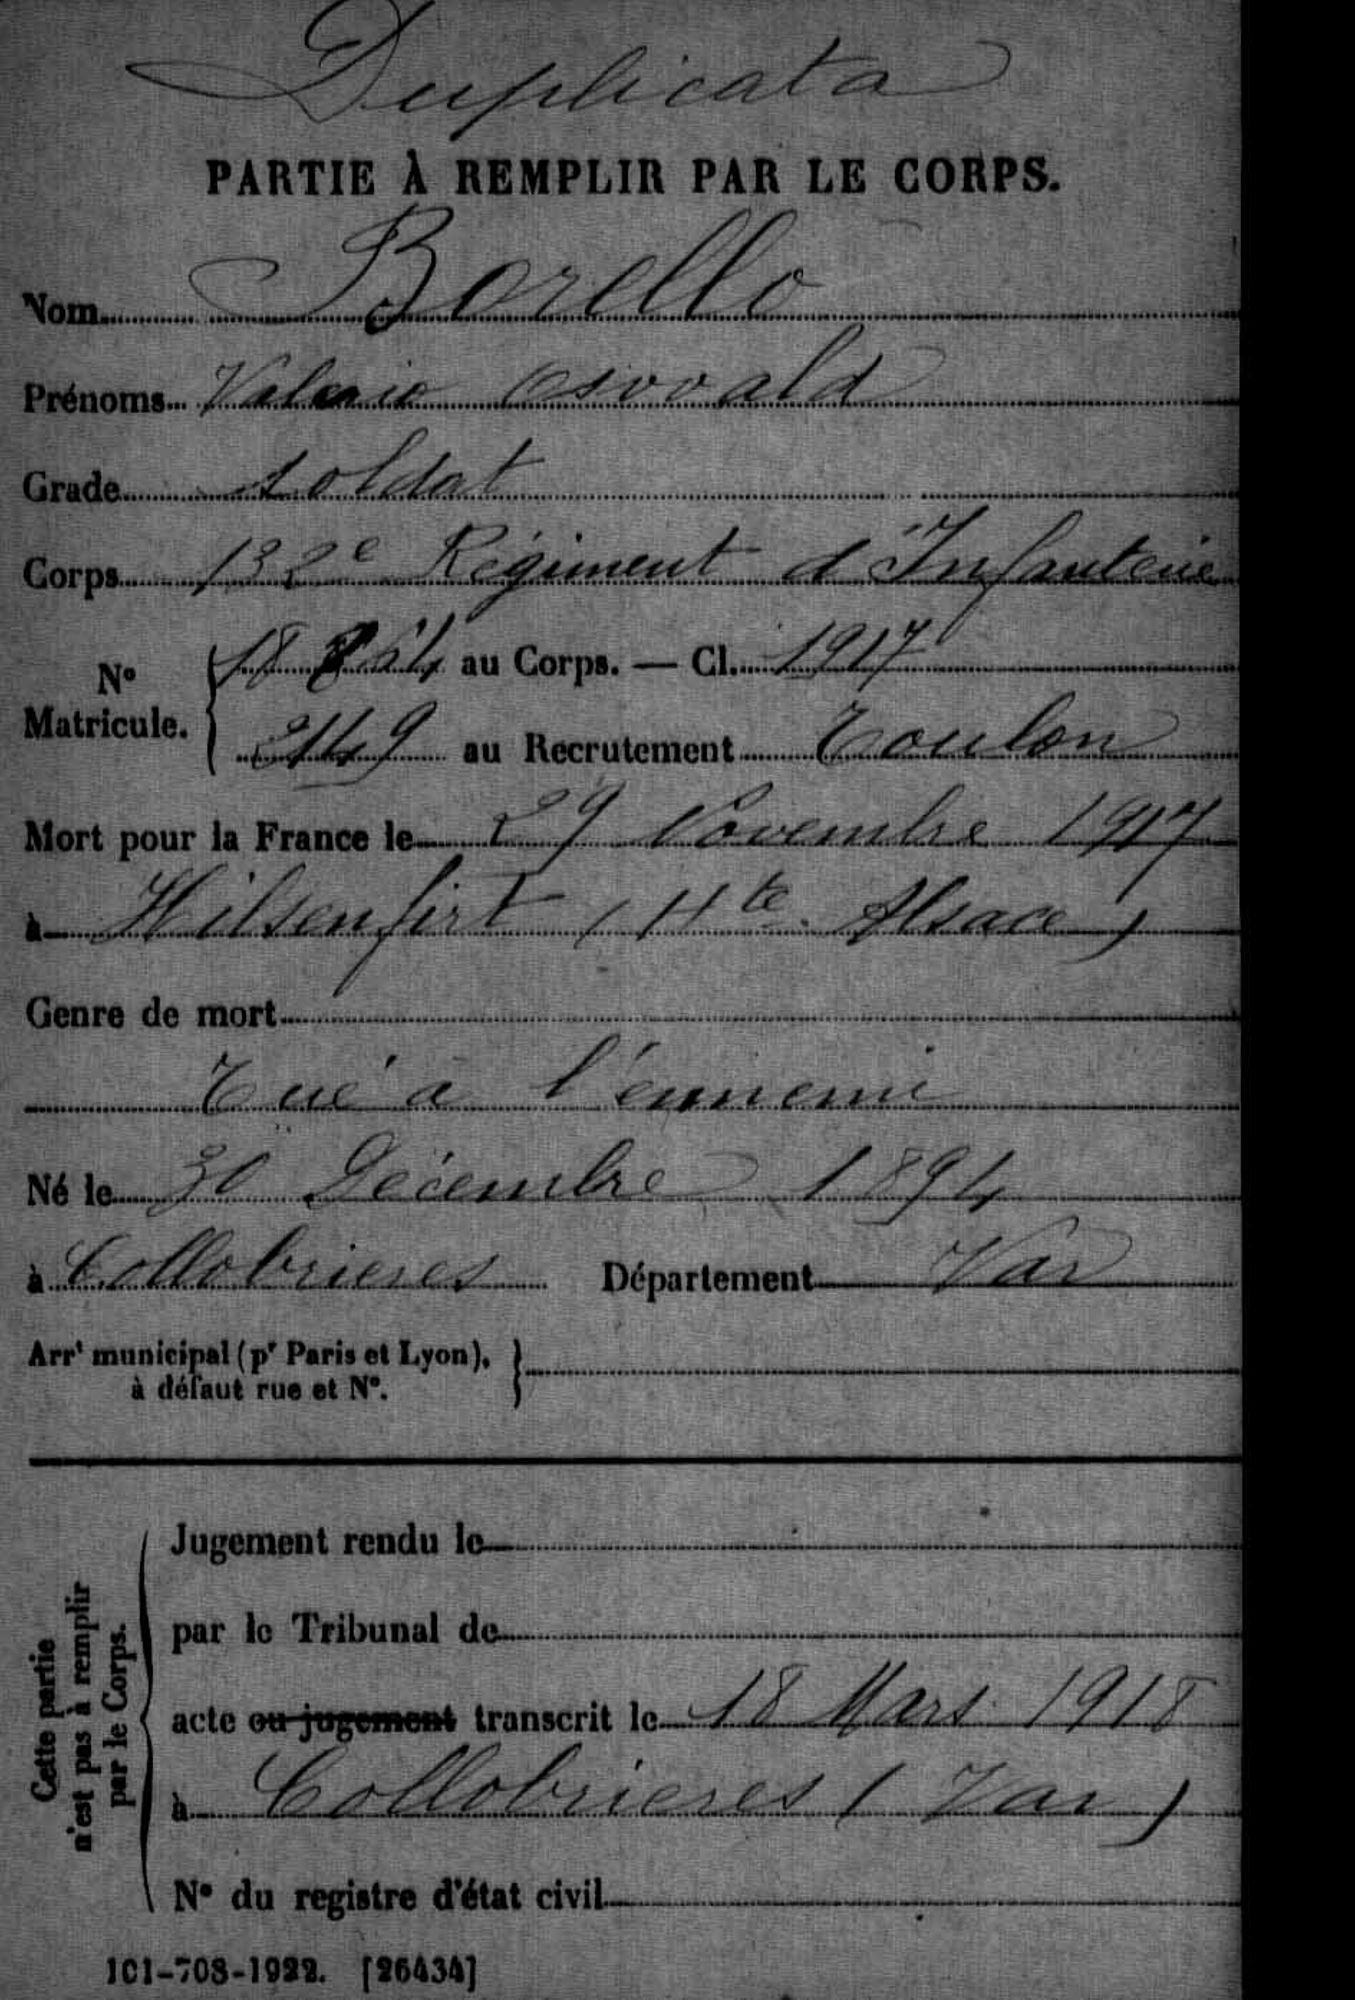 Duplicata
PARTIE À REMPLIR PAR LE CORPS.
Nom Borello
Prénoms Valerio Osvvald
Grade soldat
Corps 132e Régiment d'Infanterie
N° Matricule. 18 au Corps. — Cl. 1917
2149 au Recrutement Toulon
Mort pour la France le 29 Novembre 1917
à Hilsenfirt (Hte Alsace)
Genre de mort
Tué à l'ennemi
Né le 30 Décembre 1894
à Collobrieres Département Var
Arrt municipal (pr Paris et Lyon),
à défaut rue et N°.
Cette partie
n'est pas à remplir
par le Corps.
Jugement rendu le
par le Tribunal de
acte ou jugement transcrit le 18 Mars 1918
à Collobrieres (Var)
N° du registre d'état civil
101-708-1922. [26434]